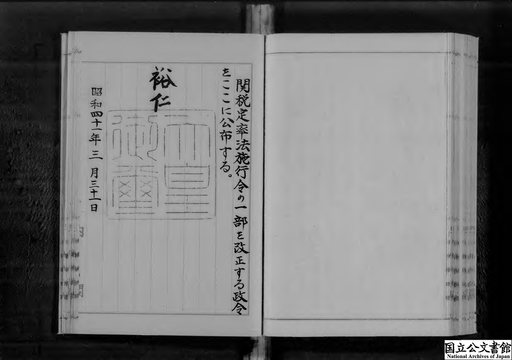 関税定率法施行令の一部を改正する政令
をここに公布する。
裕仁
天皇
御璽
昭和四十一年三月三十一日
国立公文書館
National Archives of Japan